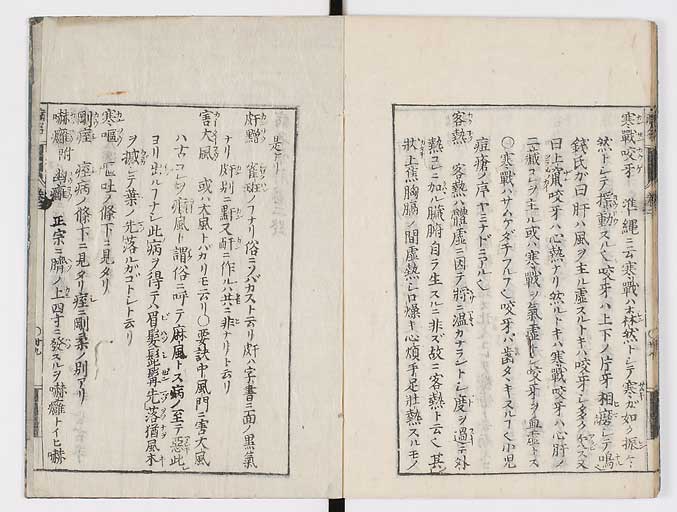 寒戰咬牙 準繩ニ云寒戰ハ森然トシテ寒ガ如ク振々
然トシテ揺動スル也咬牙ハ上下ノ片牙相磨シテ鳴
錢氏ガ曰肝ハ風ヲ主ル虚スルトキハ咬牙シ多ク欠ス又
曰上竄咬牙ハ心熱ナリ然ルトキハ寒戰咬牙ハ心肝ノ
二藏コレヲ主ル或ハ寒戰ヲ氣虚トシ咬牙ヲ血虚トス
〇寒戰ハサムケダチフルフ也咬牙ハ歯タヽキスル也小児
痘瘡ノ序ヤミナドニアル也
客熱 客熱ハ體虚ニ因テ將ニ温カナラントシ度ヲ過テ外
熱コレニ加ル臓腑自ラ生スルニ非ズ故ニ客熱ト云也其
状上焦胸膈ノ間虚熱シ口燥キ心煩手足壯熱スルモノ
是ナリ
皯䵳 雀斑ノコナリ俗ニソバカスト云リ皯ハ字書ニ面ノ黒氣
ナリ皯別ニ黚又酐ニ作ルハ共ニ非ナリト云リ
害大風 或ハ大風トバカリモ云リ〇要訣中風門ニ害大風
ハ古コレヲ癩風ト謂俗ニ呼テ麻風トス病ノ至テ惡此
ヨリ出ルハナシ此病ヲ得テハ眉髮髭鬢先落猶風木
ヲ撼シテ葉ノ先落ルガコトシト云リ
寒嘔 嘔吐ノ條下ニ見タリ
剛痙 痙病ノ條下ニ見タリ痙ニ剛柔ノ別アリ
嚇癰附幽癰 正宗ニ臍ノ上四寸ニ發スルヲ嚇癰トイヒ嚇